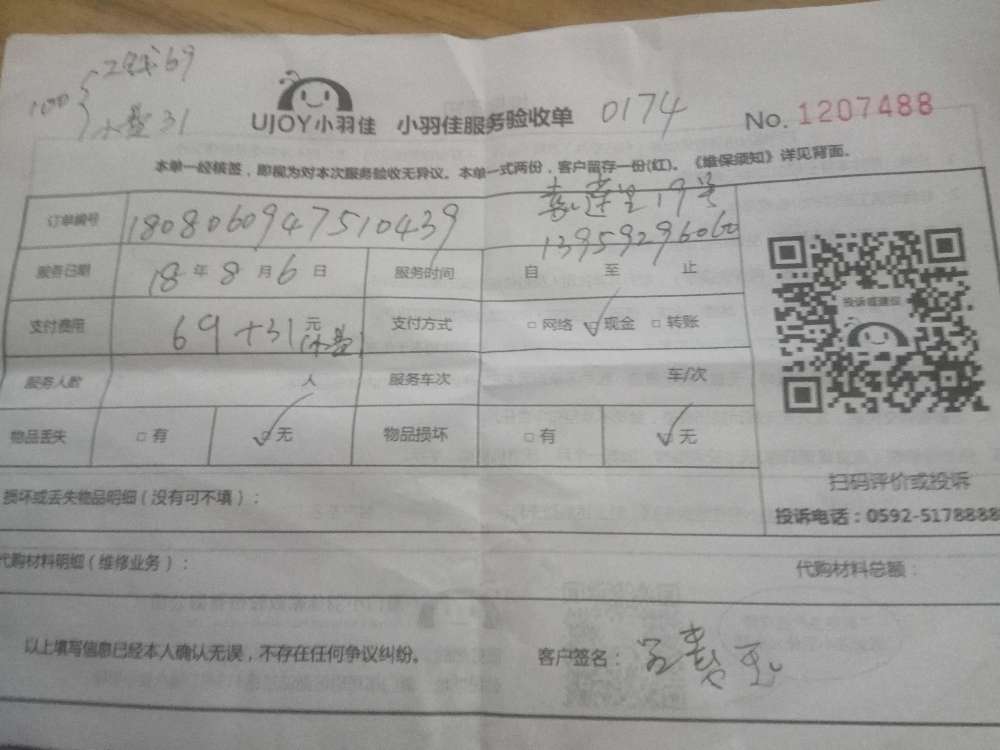 工钱69
100
小费31
UJOY小羽佳 小羽佳服务验收单 0174 No. 1207488
本单一经核签，即视为对本次服务验收无异议。本单一式两份，客户留存一份(红)。《维保须知》详见背面。
莲里19号
订单编号 1808060947510439 13959296060
服务日期 18年8月6日 服务时间 自 至 止
支付费用 69+31元 小费 支付方式 □网络 ☑现金 □转账
投诉或建议
服务人数 人 服务车次 车/次
物品丢失 □有 ☑无 物品损坏 □有 ☑无
扫码评价或投诉
损坏或丢失物品明细（没有可不填）：
投诉电话：0592-5178888
代购材料明细（维修业务）： 代购材料总额：
以上填写信息已经本人确认无误，不存在任何争议纠纷。 客户签名：